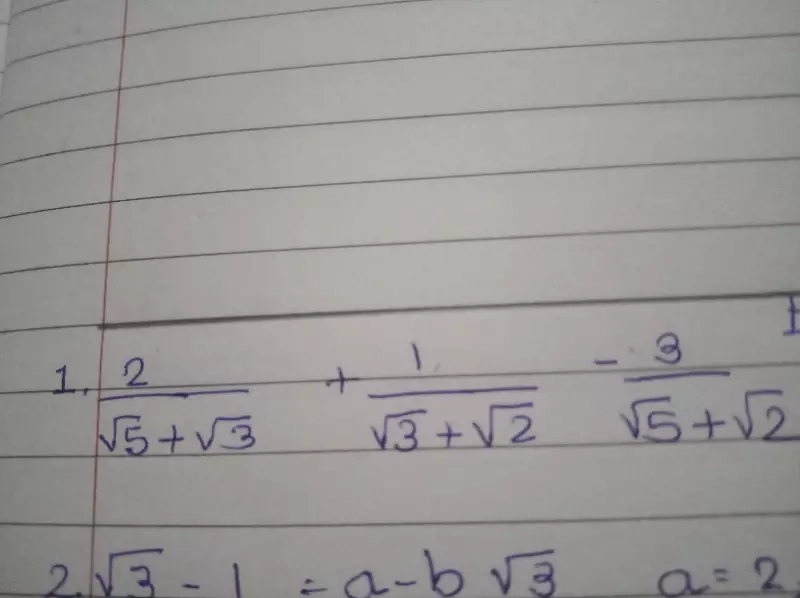 1. 2/(√5+√3) + 1/(√3+√2) - 3/(√5+√2)
2. √3 - 1 = a-b√3 a=2,